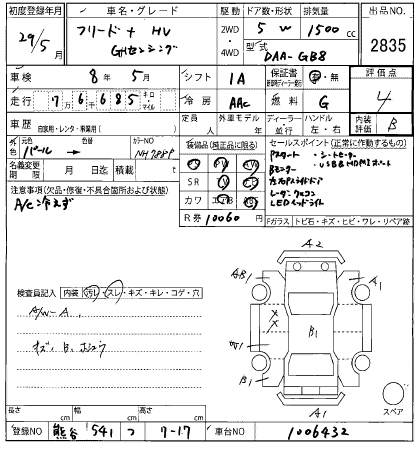 初度登録年月 車名・グレード 駆動 ドア数・形状 排気量 出品NO
29/5月 フリード+ HV 2WD 5 W 1500 cc
GHセンシング ・ 4WD 型式 DAA-GB8 2835
車検 8年 5月 シフト IA 保証書 有・無 評価点
走行 7万6685 キロ・マイル 冷房 AAC 燃料 G 4
車歴 自家用・レンタ・事業用( ) 定員 人 外車モデル 年 ディーラー・並行 ハンドル 左・右 内装評価 B
外色 元色 パール 色替 → カラーNO NH788P
名義変更期限 月 日迄 積載 t
装備品(純正品に限る)
SR
カワ
R券 10060円
セールスポイント(正常に作動するもの)
Pスタート ・シートヒーター
Bモニター ・USB HDMIポート
左右Pスライドドア
レーダークルコン
LEDヘッドライト
Fガラス トビ石・キズ・ヒビ・ワレ・リペア跡
注意事項(欠品・修復・不具合箇所および状態)
A/C冷えず
検査員記入 内装 汚レ・スレ・キズ・キレ・コゲ・穴
A/W-A.
キズ・B.
A2
AB1
A1
B1
W1
B1
A1
スペア
長さ cm 幅 cm 高さ cm
登録NO 熊谷 541 つ 7-17 車台NO 1006432